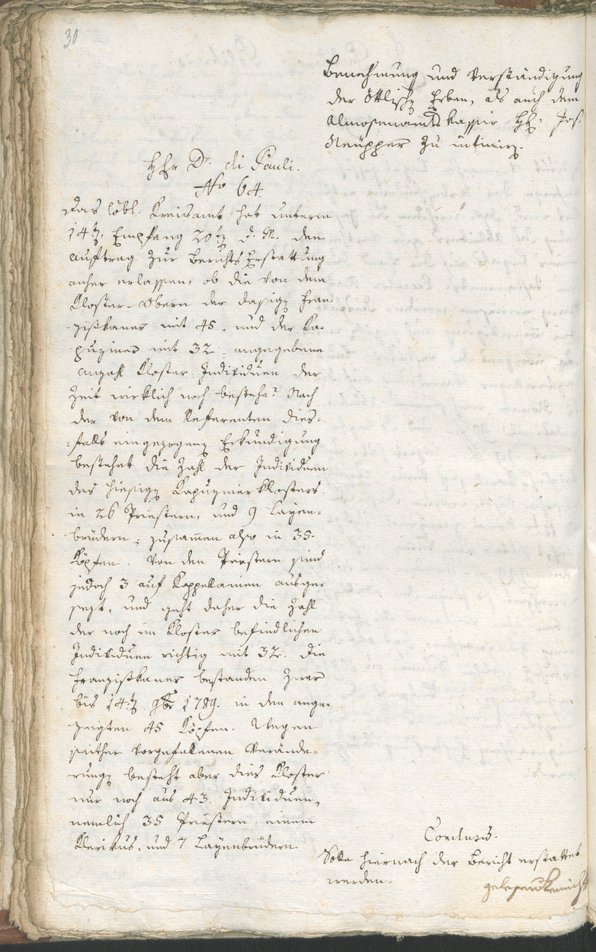 30
Benehmung und Verständigung
der Öttlischen Erben, als auch dem
Almosenamtskassir H. Jos.
Neupper zu intimiren.
Hr Dr. di Pauli.
No 64
Das löbl. Kreisamt hat unterm
14t, Empfang 20t d. M. den
Auftrag zur Berichts Erstattung
anher erlassen, ob die von dem
Kloster-Obern der dasigen Fran-
ziskaner mit 45, und der Ka-
puziner mit 32 angegebene
Anzahl Kloster-Individuen der
Zeit wirklich noch bestehe? Nach
der von dem Referenten dies-
falls eingezogenen Erkundigung
bestehet die Zahl der Individuen
des hiesigen Kapuzinerklosters
in 26 Priestern, und 9 Layen-
brüdern; zusamen also in 35
Köpfen. Von den Priestern sind
jedoch 3 auf Kappellanien ausge-
sezt, und geht daher die Zahl
der noch im Kloster befindlichen
Individuen richtig mit 32. Die
Franziskaner bestanden zwar
bis 14t 9br 1789. in den ange-
zeigten 45 Köpfen. Wegen
seither vorgefallenen Verände-
rungen besteht aber dies Kloster
nur noch aus 43 Individuen,
nemlich 35 Priestern, einem
Klerikus, und 7 Layenbrüdern
Conclusum.
Solle hiernach der Bericht erstattet
werden.